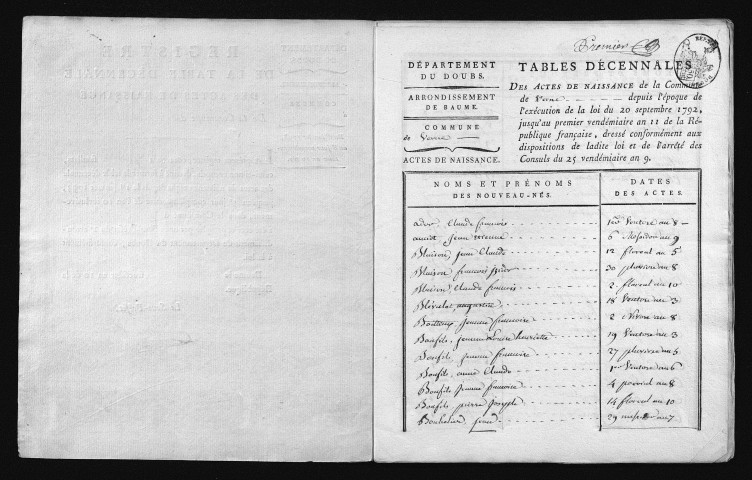 Premier
DÉPARTEMENT
DU DOUBS.
ARRONDISSEMENT
DE BAUME.
COMMUNE
de Verne
ACTES DE NAISSANCE.
TABLES DÉCENNALES
DES ACTES DE NAISSANCE de la Commune
de Verne depuis l'époque de
l'exécution de la loi du 20 septembre 1792,
jusqu'au premier vendémiaire an 11 de la Ré-
publique française, dressé conformément aux
dispositions de ladite loi et de l'arrêté des
Consuls du 25 vendémiaire an 9.
NOMS ET PRÉNOMS
DES NOUVEAU-NÉS.
DATES
DES ACTES.
ador, Claude francois 1er Ventose an 8
amiot jean 6 Messidor an 9
Blaison, jean Claude 12 floreal an 5
Blaison francois 30 pluviose an 8
Blaison, Claude francois 2 floreal an 10
augustine 18 Ventose an 3
jeanne francoise 2 Nivose an 8
Bonfils, jeanne Louise henriette 19 Ventose an 3
Bonfils, jeanne francoise 27 pluviose an 5
Bonfils, anne Claude 1er Ventose an 6
Bonfils jeanne francoise 4 an 8
Bonfils pierre joseph 14 floreal an 10
Bonhotal, jean 29 an 7